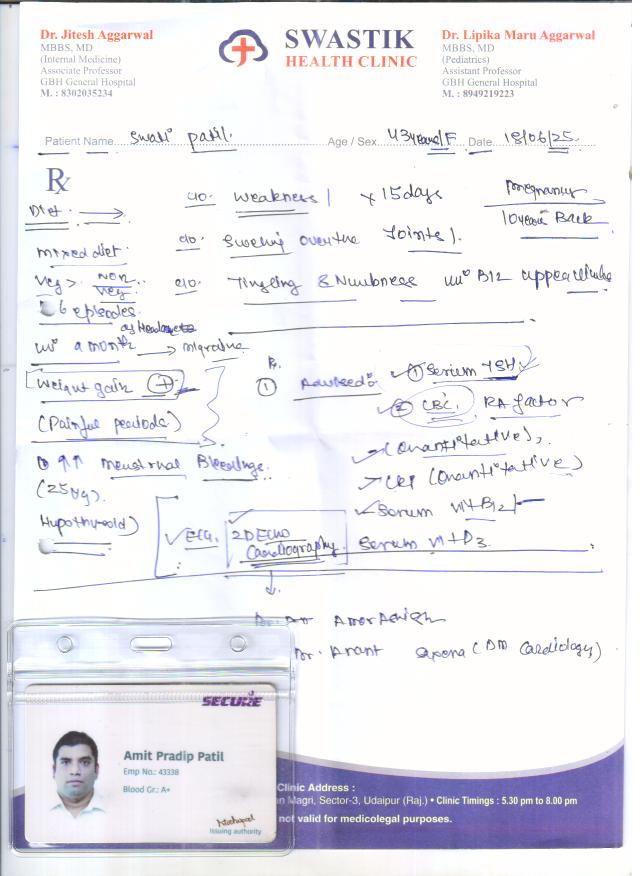 Dr. Jitesh Aggarwal
MBBS, MD
(Internal Medicine)
Associate Professor
GBH General Hospital
M. : 8302035234
SWASTIK
HEALTH CLINIC
Dr. Lipika Maru Aggarwal
MBBS, MD
(Pediatrics)
Assistant Professor
GBH General Hospital
M. : 8949219223
Patient Name Swati Patil. Age / Sex 43years/F Date 18/06/25
Rx
c/o. Weakness x 15days
Pregnancy
10 years Back
Diet
c/o. Swelling over the Joints
mixed diet
Veg > Non Veg.
c/o. Tingling & Numbness B12
6 episodes
of Headache
a month → migraine
Weight gain +
(Painful periods)
↑↑ Menstrual Bleeding.
(25
Hypothyroid)
Rx.
① Advised
① Serum TSH
② CBC, RA factor
(Quantitative),
CRP (Quantitative)
Serum Vit B12
ECG, 2D Echo Cardiography. Serum Vit D3.
Dr.
Dr. Anant (DM Cardiology)
SECURE
Amit Pradip Patil
Emp No.: 43338
Blood Gr.: A+
Issuing authority
Clinic Address :
Magri, Sector-3, Udaipur (Raj.) • Clinic Timings : 5.30 pm to 8.00 pm
not valid for medicolegal purposes.